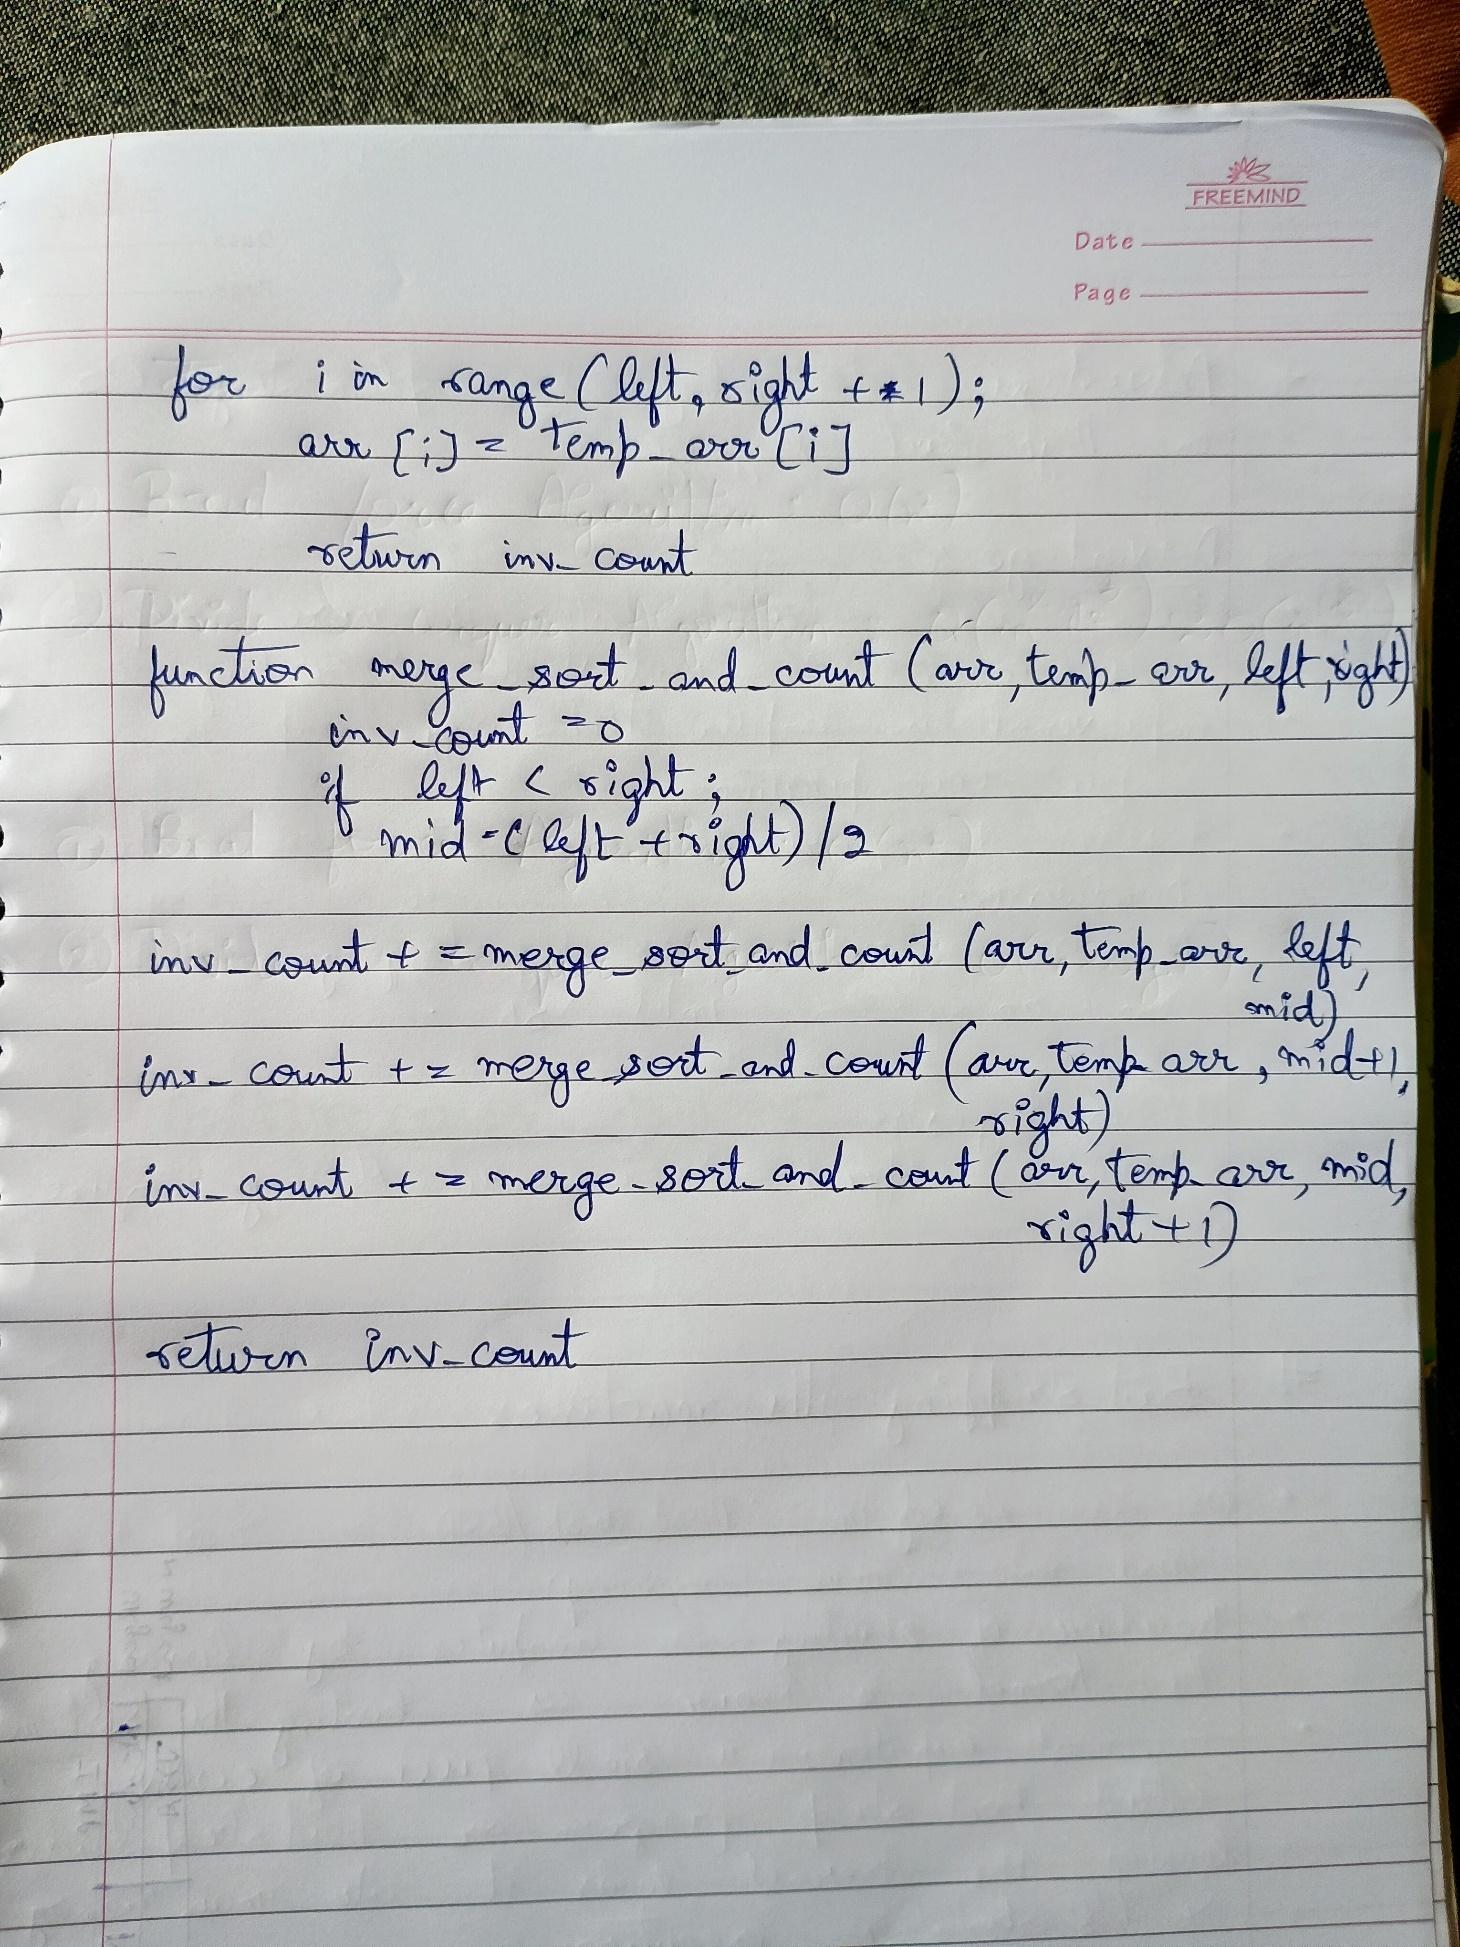 FREEMIND
Date
Page
for i in range (left, right + 1);
arr [i] = temp_arr [i]
return inv_count
function merge_sort_and_count (arr, temp_arr, left, right)
inv_count = 0
if left < right;
mid = (left + right) / 2
inv_count += merge_sort_and_count (arr, temp_arr, left,
mid)
inv_count += merge_sort_and_count (arr, temp arr, mid+1,
right)
inv_count += merge_sort_and_count (arr, temp_arr, mid,
right + 1)
return inv_count